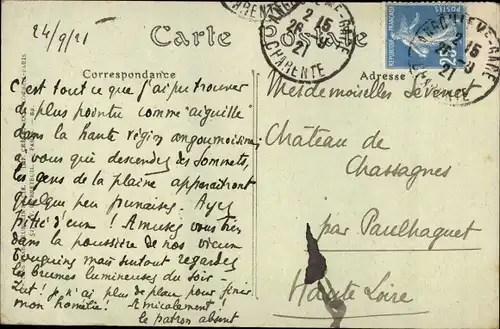 24/9/21
Carte Postale
ANGOULÊME-GARE
2 15
26 - 9
21
CHARENTE
ANGOULÊME-GARE
2 15
26 - 9
21
CHARENTE
POSTES
25
Correspondance
Adresse
C'est tout ce que j'ai pu trouver
de plus pointu comme "aiguille"
dans la haute région angoumoisine ;
à vous qui descendez des sommets,
les gens de la plaine apparaîtront
quelque peu punaises. Ayez
pitié d'eux ! Amusez vous bien
dans la poussière de nos vieux
bouquins mais surtout regardez
les brumes lumineuses du soir -
Zut ! je n'ai plus de place pour finir
mon homélie ! Amicalement !
le patron absent
Mesdemoiselles
Château de
Chassagnes
par Paulhaguet
Haute Loire